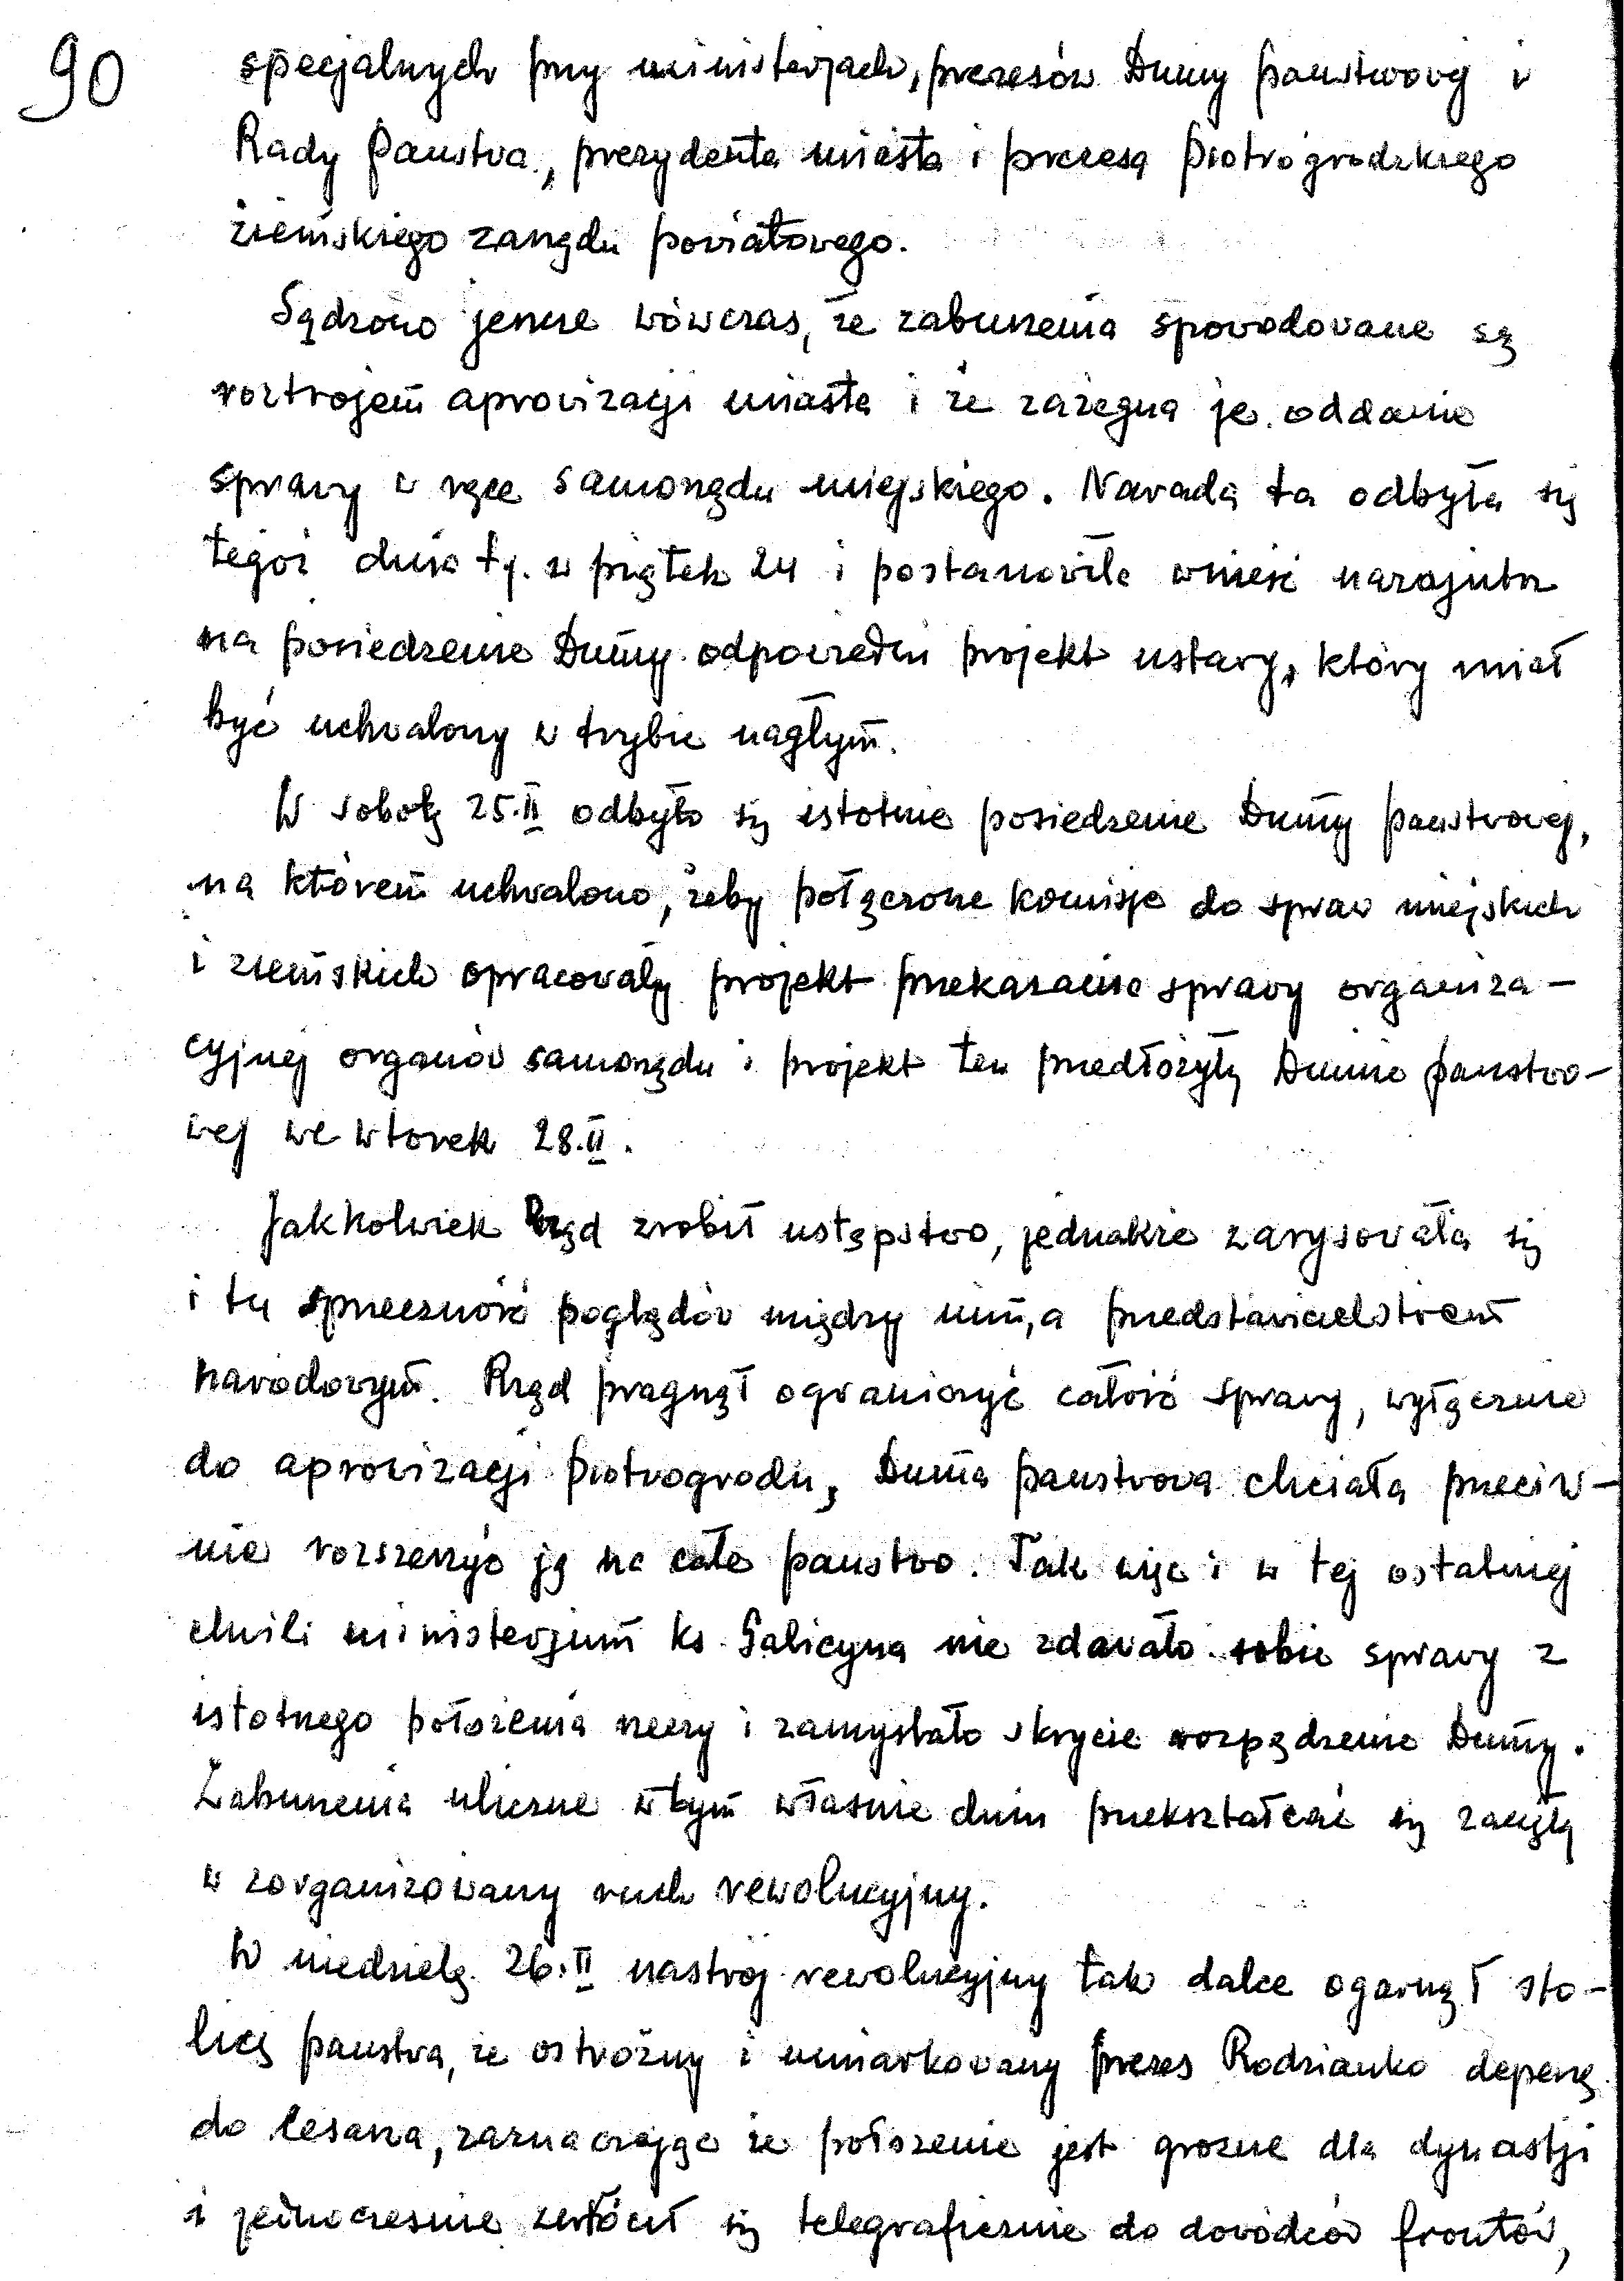 90
specjalnych przy ministerjach, prezesów Dumy państwowej i
Rady Państwa, prezydenta miasta i prezesa piotrogrodzkiego
ziemskiego zarządu powiatowego.
Sądzono jeszcze wówczas, że zaburzenia spowodowane są
roztrojem aprowizacji miasta i że zażegna je oddanie
sprawy w ręce samorządu miejskiego. Narada ta odbyła się
tegoż dnia tj. w piątek 24 i postanowiła wnieść nazajutrz
na posiedzenie Dumy odpowiedni projekt ustawy, który miał
być uchwalony w trybie nagłym.
W sobotę 25.II odbyło się istotnie posiedzenie Dumy państwowej,
na którem uchwalono, żeby połączone komisje do spraw miejskich
i ziemskich opracowały projekt przekazania sprawy organiza-
cyjnej organów samorządu i projekt ten przedłożyły Dumie państwo-
wej we wtorek 28.II.
Jakkolwiek Rząd zrobił ustępstwo, jednakże zarysowała się
i tu sprzeczność poglądów między nim, a przedstawicielstwem
narodowym. Rząd pragnął ograniczyć całość sprawy, wyłącznie
do aprowizacji piotrogrodu, Duma państwowa chciała przeciw-
nie rozszerzyć ją na całe państwo. Tak więc i w tej ostatniej
chwili ministerjum ks. Galicyna nie zdawało sobie sprawy z
istotnego położenia rzeczy i zamyślało skrycie rozpędzenie Dumy.
Zaburzenia uliczne w tym właśnie dniu przekształcać się zaczęły
w zorganizowany ruch rewolucyjny.
W niedzielę 26.II nastrój rewolucyjny tak dalce ogarnął sto-
licę państwa, że ostrożny i umiarkowany prezes Rodzianko depeszę
do Cesarza, zaznaczając że położenie jest groźne dla dynastji
i jednocześnie zwrócił się telegraficznie do dowódców frontów,